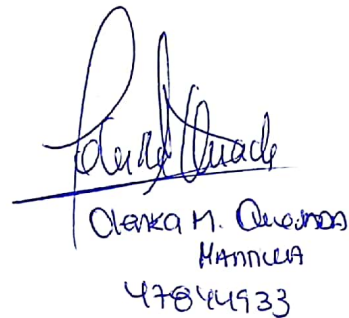 Olenka M. Quesada
Mantilla
47844933